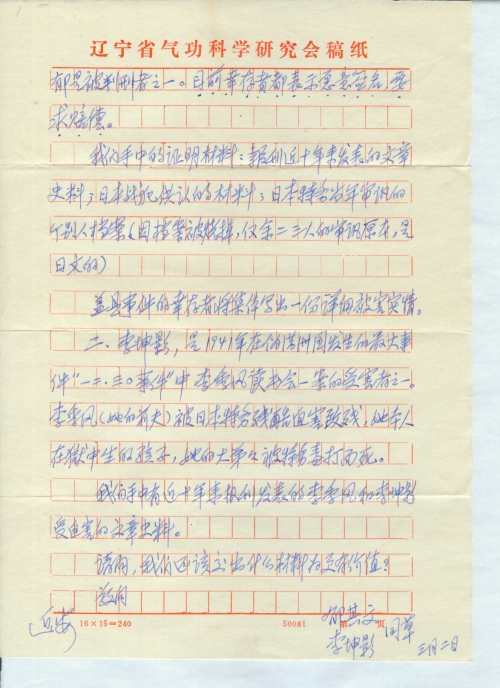 辽宁省气功科学研究会稿纸
都是被判刑者之一。目前幸存者都表示愿意签名，要
求赔偿。
我们手中的证明材料：报刊近十年来发表的文章
史料；日本战犯供认的材料；日本特务当年审讯的
个别人档案（因档案被烧掉，仅余二三人的审讯原本，是
日文的）
盖县事件的幸存者将集体写出一份详细被害实情。
二、李坤影，是1941年在伪满州国发生的最大事
件“一二·三〇事件”中李季风读书会一案的受害者之一。
李季风（她的前夫）被日本特务残酷迫害致残，她本人
在狱中生的孩子，她的大弟弟被特务毒打而死。
我们手中有近十年来报刊发表的李季风和李坤影
受迫害的文章史料。
请问，我们还该交出什么材料为更有价值？
敬问
近安
16×15=240
50081
第 页
李坤影 同草
三月二日